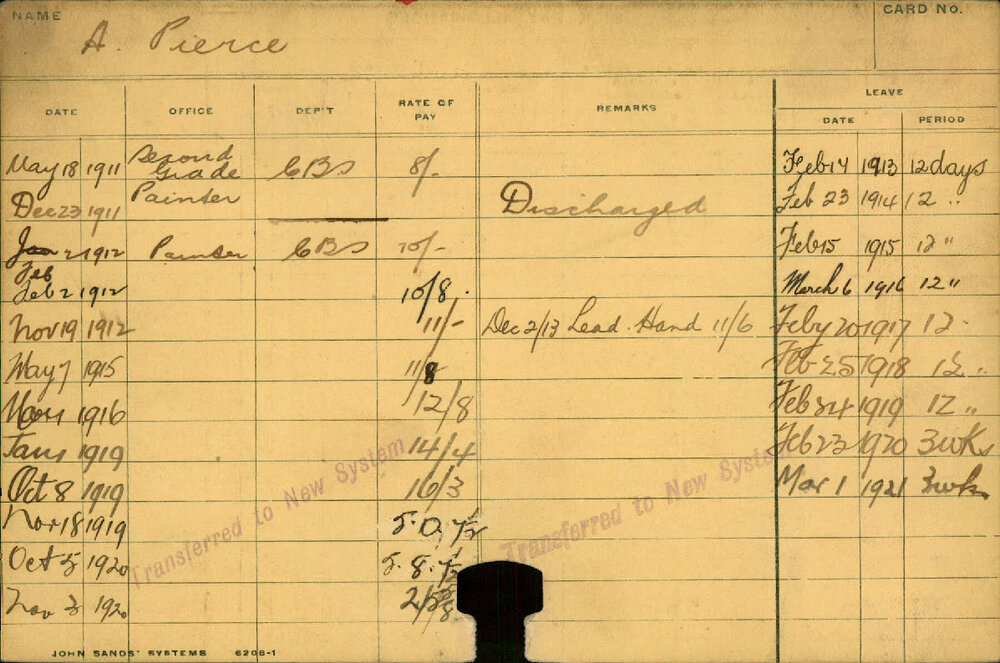 NAME
CARD No.
A. Pierce
DATE OFFICE DEP'T RATE OF PAY REMARKS LEAVE
DATE PERIOD
May 18 1911 Second Grade Painter CBS 8/- Feb 14 1913 12 days
Dec 23 1911 Discharged Feb 23 1914 12 "
Jan 2 1912 Painter CBS 10/- Feb 15 1915 12 "
Feb
Feb 2 1912 10/8. March 6 1916 12 "
Nov 19 1912 11/- Dec 2/13 Lead. Hand 11/6 Feby 20 1917 12 -
May 7 1915 11/8 Feb 25 1918 12 "
1916 12/8 Feb 24 1919 12 "
Jan 1 1919 14/4 Feb 23 1920 3wks
Oct 8 1919 16/3 Mar 1 1921 3wks
Nov 18 1919 5. 0. 7/2
Oct 5 1920 5. 8. 7/2
Nov 3 1920
Transferred to New System
Transferred to New System
JOHN SANDS' SYSTEMS 6206-1